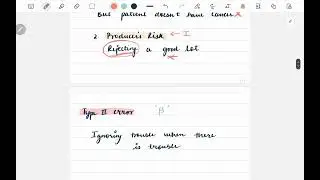 But patient doesn't have cancer x
2 Producer's Risk ← I
Rejecting a good lot
x
Type II error 'β'
Ignoring trouble when there
is trouble